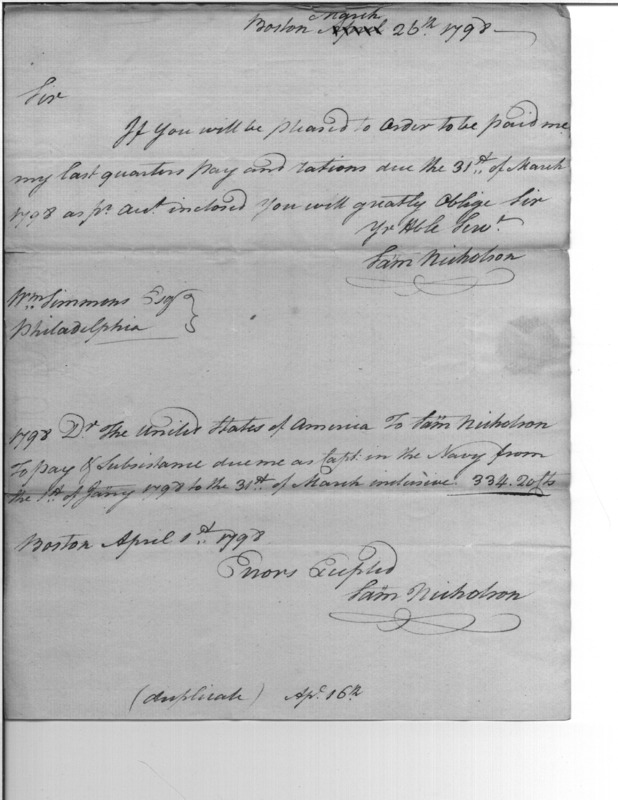 March
Boston April 26th 1798
Sir
If You will be pleased to Order to be paid me
my last quarters pay and rations due the 31st. of March
1798 as pr. acct. inclosed You will greatly Oblige Sir
Yr Hble Servt.
Sam Nicholson
Wm Simmons Esqr
Philadelphia
1798 Dr The United States of America To Sam Nicholson
To pay & Subsistance due me as Capt. in the Navy from
the 1st. of Janry 1798 to the 31st. of March inclusive. 334.20
Boston April 1st. 1798
Errors Excepted
Sam Nicholson
(duplicate) Apl. 16th